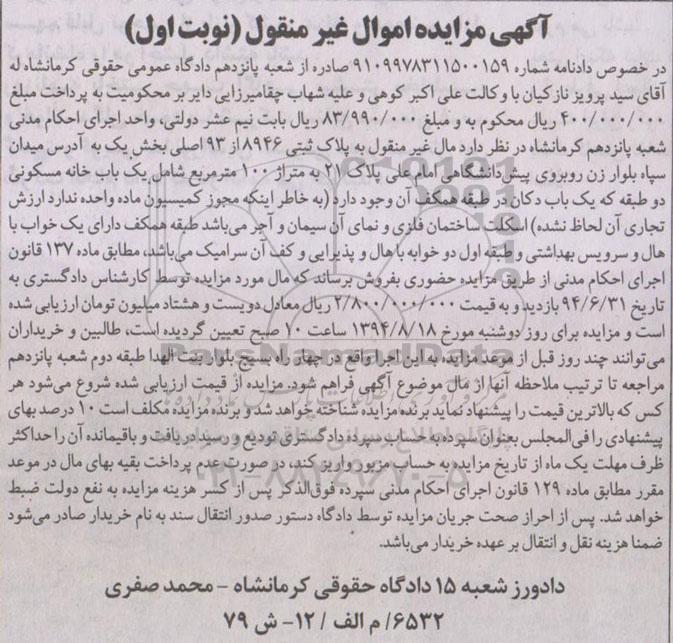 آگهی مزایده اموال غیر منقول (نوبت اول)
در خصوص دادنامه شماره ۹۱۰۹۹۷۸۳۱۱۵۰۰۱۵۹ صادره از شعبه پانزدهم دادگاه عمومی حقوقی کرمانشاه له
آقای سید پرویز نازکیان با وکالت علی اکبر کوهی و علیه شهاب چقامیرزایی دایر بر محکومیت به پرداخت مبلغ
۴۰۰/۰۰۰/۰۰۰ ریال محکوم به و مبلغ ۸۳/۹۹۰/۰۰۰ ریال بابت نیم عشر دولتی، واحد اجرای احکام مدنی
شعبه پانزدهم کرمانشاه در نظر دارد مال غیر منقول به پلاک ثبتی ۸۹۴۶ از ۹۳ اصلی بخش یک به آدرس میدان
سپاه بلوار زن روبروی پیش‌دانشگاهی امام علی پلاک ۲۷ به متراژ ۱۰۰ مترمربع شامل یک باب خانه مسکونی
دو طبقه که یک باب دکان در طبقه همکف آن وجود دارد (به خاطر اینکه مجوز کمیسیون ماده واحده ندارد ارزش
تجاری آن لحاظ نشده) اسکلت ساختمان فلزی و نمای آن سیمان و آجر می‌باشد طبقه همکف دارای یک خواب با
هال و سرویس بهداشتی و طبقه اول دو خوابه با هال و پذیرایی و کف آن سرامیک می‌باشد، مطابق ماده ۱۳۷ قانون
اجرای احکام مدنی از طریق مزایده حضوری بفروش برساند که مال مورد مزایده توسط کارشناس دادگستری به
تاریخ ۹۴/۶/۳۱ بازدید و به قیمت ۲/۸۰۰/۰۰۰/۰۰۰ ریال معادل دویست و هشتاد میلیون تومان ارزیابی شده
است و مزایده برای روز دوشنبه مورخ ۱۳۹۴/۸/۱۸ ساعت ۱۰ صبح تعیین گردیده است، طالبین و خریداران
می‌توانند چند روز قبل از موعد مزایده به این اجرا واقع در چهار راه بسیج بلوار بنت الهدا طبقه دوم شعبه پانزدهم
مراجعه تا ترتیب ملاحظه آنها از مال موضوع آگهی فراهم شود. مزایده از قیمت ارزیابی شده شروع می‌شود هر
کس که بالاترین قیمت را پیشنهاد نماید برنده مزایده شناخته خواهد شد و برنده مزایده مکلف است ۱۰ درصد بهای
پیشنهادی را فی‌المجلس بعنوان سپرده به حساب سپرده دادگستری تودیع و رسید دریافت و باقیمانده آن را حداکثر
ظرف مهلت یک ماه از تاریخ مزایده به حساب مزبور واریز کند، در صورت عدم پرداخت بقیه بهای مال در موعد
مقرر مطابق ماده ۱۲۹ قانون اجرای احکام مدنی سپرده فوق‌الذکر پس از کسر هزینه مزایده به نفع دولت ضبط
خواهد شد. پس از احراز صحت جریان مزایده توسط دادگاه دستور صدور انتقال سند به نام خریدار صادر می‌شود
ضمنا هزینه نقل و انتقال بر عهده خریدار می‌باشد.
دادورز شعبه ۱۵ دادگاه حقوقی کرمانشاه - محمد صفری
۶۵۳۲/ م الف / ۱۲- ش ۷۹